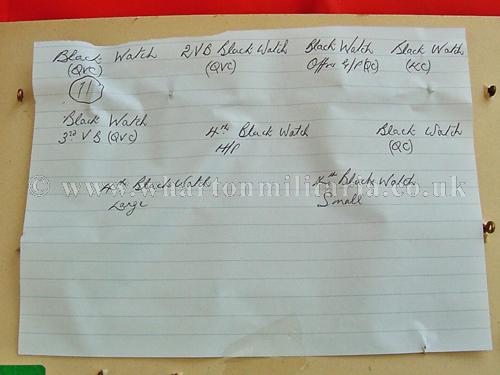 Black Watch 2VB Black Watch Black Watch Black Watch
(QVC) (QVC) Offrs S/P (QC) (KC)
71
Black Watch
3rd VB (QVC) 4th Black Watch Black Watch
H/P (QC)
© www.whartonmilitaria.co.uk
4th Black Watch 4th Black Watch
Large Small